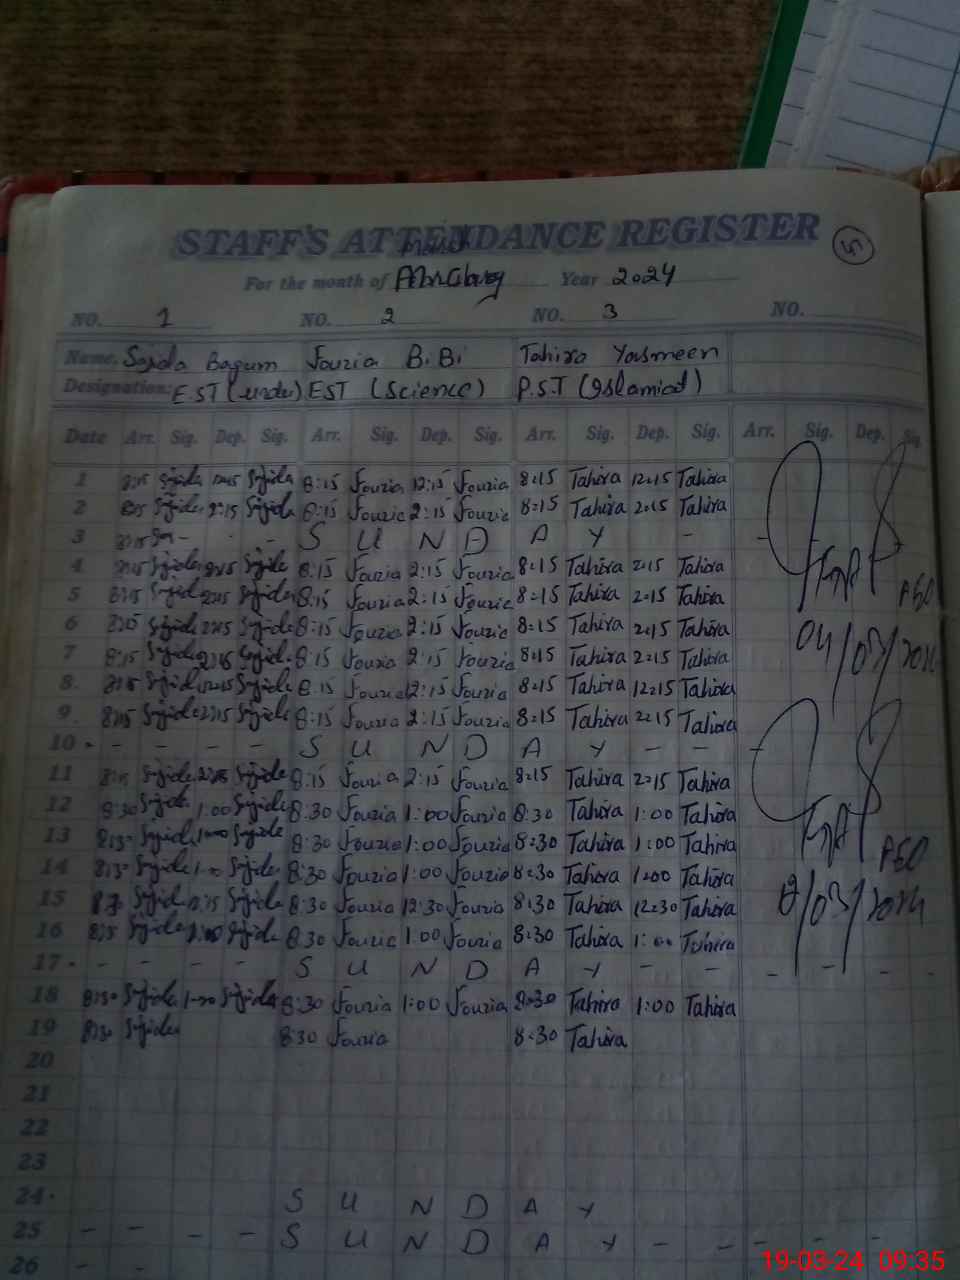 STAFF'S ATTENDANCE REGISTER
5
March
For the month of Year 2024
NO. 1 NO. 2 NO. 3 NO.
Name. Sajda Bagum Fouzia BiBi Tahira Yasmeen
Designation: E.ST (urdu) EST (Science) P.S.T (Islamiat)
Date Arr. Sig. Dep. Sig. Arr. Sig. Dep. Sig. Arr. Sig. Dep. Sig. Arr. Sig. Dep. Sig.
1 8:15 Sajida 12:15 Sajida 8:15 Fouzia 12:15 Fouzia 8:15 Tahira 12:15 Tahira
2 8:15 Sajida 2:15 Sajida 8:15 Fouzia 2:15 Fouzia 8:15 Tahira 2:15 Tahira
3 8:15 - - - S U N D A Y - -
4 8:15 Sajida 2:15 Sajida 8:15 Fouzia 2:15 Fouzia 8:15 Tahira 2:15 Tahira
5 8:15 Sajida 2:15 Sajida 8:15 Fouzia 2:15 Fouzia 8:15 Tahira 2:15 Tahira AEO
6 8:15 Sajida 2:15 Sajida 8:15 Fouzia 2:15 Fouzia 8:15 Tahira 2:15 Tahira 04/03/2024
7 8:15 Sajida 2:15 Sajida 8:15 Fouzia 2:15 Fouzia 8:15 Tahira 2:15 Tahira
8. 8:15 Sajida 12:15 Sajida 8:15 Fouzia 12:15 Fouzia 8:15 Tahira 12:15 Tahira
9. 8:15 Sajida 2:15 Sajida 8:15 Fouzia 2:15 Fouzia 8:15 Tahira 2:15 Tahira
10 - - - - - S U N D A Y - - -
11 8:15 Sajida 2:15 Sajida 8:15 Fouzia 2:15 Fouzia 8:15 Tahira 2:15 Tahira
12 8:30 Sajida 1:00 Sajida 8:30 Fouzia 1:00 Fouzia 8:30 Tahira 1:00 Tahira
13 8:30 Sajida 1:00 Sajida 8:30 Fouzia 1:00 Fouzia 8:30 Tahira 1:00 Tahira AEO
14 8:30 Sajida 1:00 Sajida 8:30 Fouzia 1:00 Fouzia 8:30 Tahira 1:00 Tahira
15 Sajida Sajida 8:30 Fouzia 12:30 Fouzia 8:30 Tahira 12:30 Tahira /03/2024
16 Sajida 1:00 Sajida 8:30 Fouzia 1:00 Fouzia 8:30 Tahira 1:00 Tahira
17 - - - - - S U N D A Y - - - - -
18 8:30 Sajida 1:00 Sajida 8:30 Fouzia 1:00 Fouzia 8:30 Tahira 1:00 Tahira
19 8:30 Sajida 8:30 Fouzia 8:30 Tahira
20
21
22
23
24 S U N D A Y
25 - - - - S U N D A Y - - - - -
26 - -
19-03-24 09:35